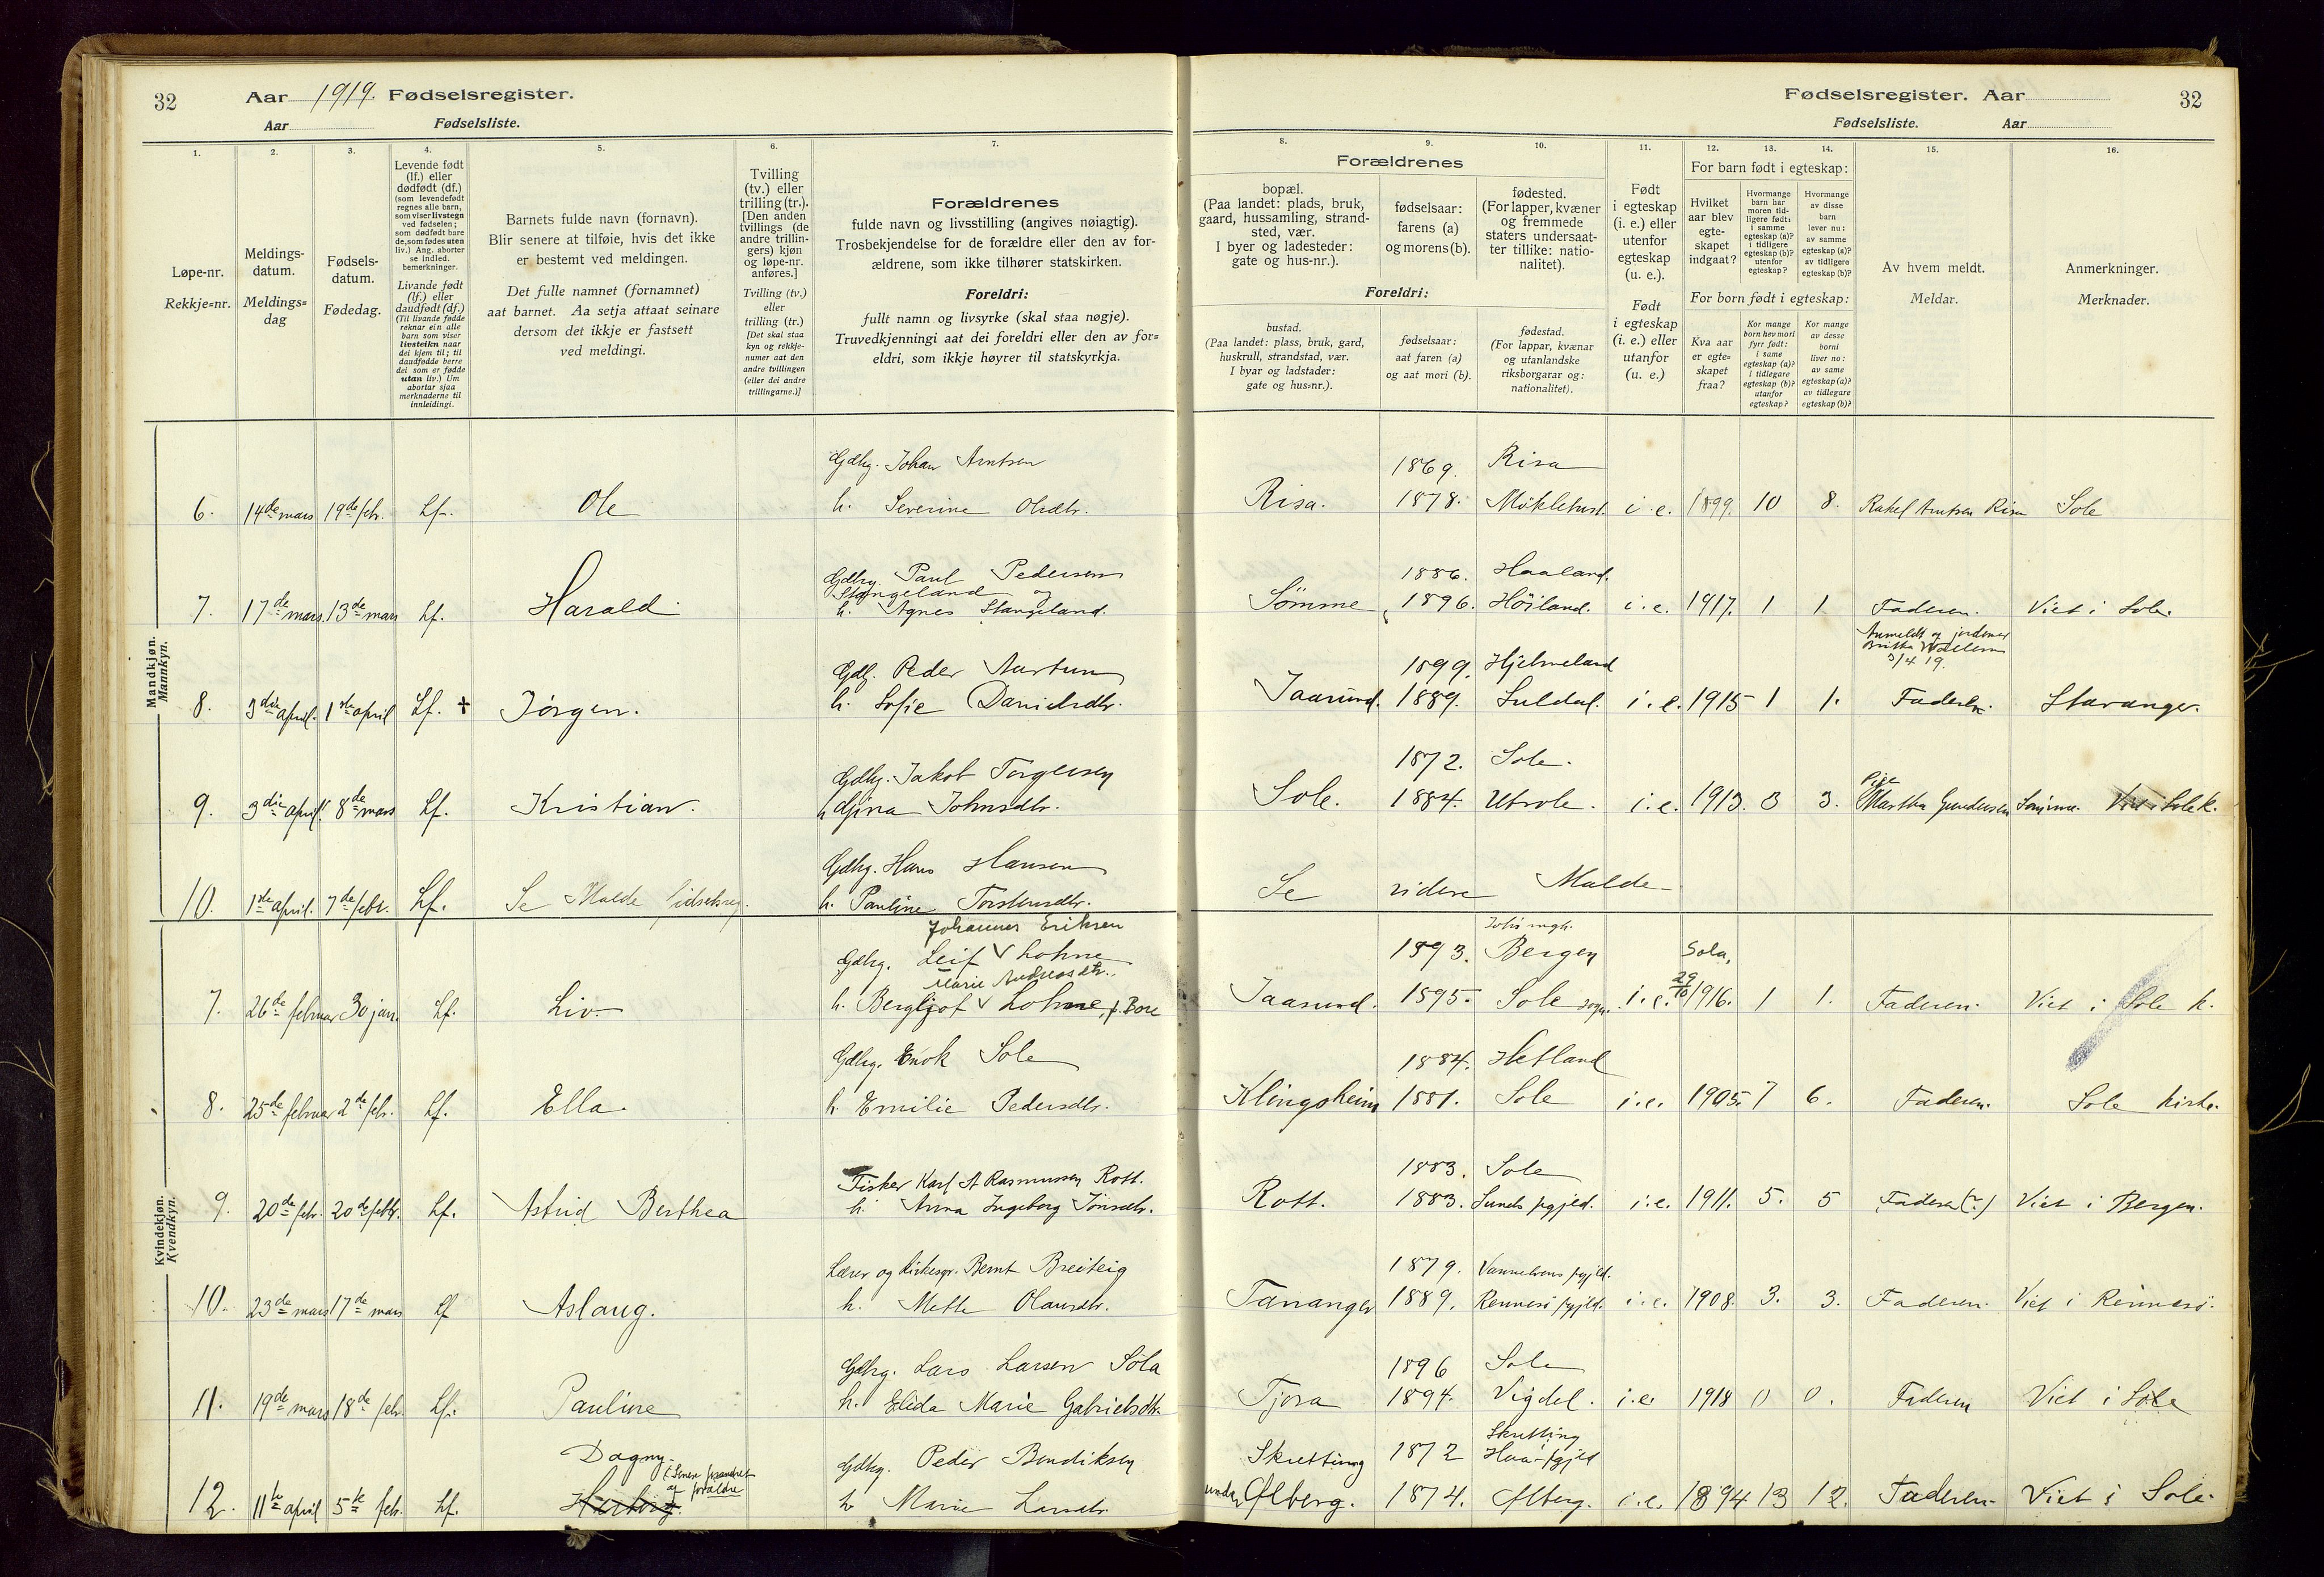 32 Aar 1919. Fødselsregister.
Aar Fødselsliste.
Fødselsregister. Aar 32
Fødselsliste. Aar
1. 2. 3. 4. 5. 6. 7.
Løpe-nr.
Rekkje=nr.
Meldings-
datum.
Meldings=
dag
Fødsels-
datum.
Fødedag.
Levende født
(lf.) eller
dødfødt (df.)
(som levendefødt
regnes alle barn,
som viser livstegn
ved fødselen;
som dødfødt bare
de, som fødes uten
liv.) Ang. aborter
se indled.
bemerkninger.
Livande født
(lf.) eller
daudfødt (df.)
(Til livande fødde
reknar ein alle
barn som viser
livsteikn naar
dei kjem til; til
daudfødde berre
dei som er fødde
utan liv.) Um
abortar sjaa
merknaderne til
innleidingi.
Barnets fulde navn (fornavn).
Blir senere at tilføie, hvis det ikke
er bestemt ved meldingen.
Det fulle namnet (fornamnet)
aat barnet. Aa setja attaat seinare
dersom det ikkje er fastsett
ved meldingi.
Tvilling
(tv.) eller
trilling (tr.).
[Den anden
tvillings (de
andre trillin-
gers) kjøn
og løpe-nr.
anføres.]
Tvilling (tv.)
eller
trilling (tr.)
[Det skal staa
kyn og rekkje-
numer aat den
andre tvillingen
(eller dei andre
trillingarne.)]
Forældrenes
fulde navn og livsstilling (angives nøiagtig).
Trosbekjendelse for de forældre eller den av for-
ældrene, som ikke tilhører statskirken.
Foreldri:
fullt namn og livsyrke (skal staa nøgje).
Truvedkjenningi aat dei foreldri eller den av for=
eldri, som ikkje høyrer til statskyrkja.
8. 9. 10. 11. 12. 13. 14. 15. 16.
Forældrenes
bopæl.
(Paa landet: plads, bruk,
gaard, hussamling, strand-
sted, vær.
I byer og ladesteder:
gate og hus-nr.).
fødselsaar:
farens (a)
og morens (b).
fødested.
(For lapper, kvæner
og fremmede
staters undersaat-
ter tillike: natio-
nalitet).
Foreldri:
bustad.
(Paa landet: plass, bruk, gard,
huskrull, strandstad, vær.
I byar og ladstader:
gate og hus=nr.).
fødselsaar:
aat faren (a)
og aat mori (b).
fødestad.
(For lappar, kvænar
og utanlandske
riksborgarar og:
nationalitet).
Født
i egteskap
(i. e.) eller
utenfor
egteskap
(u. e.).
Født
i egteskap
(i. e.) eller
utanfor
(u. e.)
For barn født i egteskap:
Hvilket
aar blev
egte-
skapet
indgaat?
Hvormange
barn har
moren tid-
ligere født:
i samme
egteskap (a)?
i tidligere
egteskap (b)?
utenfor
egteskap?
Hvormange
av disse
barn
lever nu:
av samme
egteskap (a)?
av tidligere
egteskap (b)?
For born født i egteskap:
Kva aar
er egte=
skapet
fraa?
Kor mange
born hev mori
fyrr født:
i same
egteskap (a)?
i tidlegare
egteskap (b)?
utanfor
egteskap?
Kor mange
av desse
borni
liver no:
av same
egteskap (a)?
av tidlegare
egteskap (b)?
Av hvem meldt.
Meldar.
Anmerkninger.
Merknader.
Mandkjøn.
Mannkyn.
Gdbg. Johan Arntsen 1869. Risa
6. 14de mars 19de febr. Lf. Ole h. Severine Olsdtr. Risa. 1878. i. e. 1899. 10 8. Rakel Arntsen Risa Sole
Gdbrg. Paul Pedersen 1886. Haaland.
Stangeland og
7. 17de mars. 13de mars Lf. Harald h. Agnes Stangeland. Sömme 1896. Höiland. i. e. 1917. 1 1. Faderen. Viet i Sole.
Anmeldt og jordmor
3/4 19.
Gdbg. Peder Aartun 1899. Hjelmeland
8. 3die april. 1ste april Lf. ✝ Jörgen. h. Sofie Danielsdtr. Jaasund. 1889. Suldal. i. e. 1915 1 1. Faderen. Stavanger.
Gdbg. Jakob Torgersen 1872. Sole.
Pige
9. 3die april 8de mars Lf. Kristian. h. Gjina Johnsdtr. Sole. 1884. Utsole. i. e. 1913. 3 3. Martha Gundersen Sömme. Viet i Sole k.
Gdbrg. Hans Hansen
10. 1ste april. 7de febr. Lf. Se Malde fødselsreg. h. Pauline Torstensdtr. Se videre Malde
Kvindekjøn.
Kvendkyn.
Johannes Eriksen
Gdbrg. Leif Lohne 1893. Bergen Sola,
Marie Andreasdtr.
7. 26de februar 30 jan. Lf. Liv. h. Bergljot Lohne, f. Bore Jaasund. 1895. Sole sogn. i. e. 29/10 1916. 1 1. Faderen. Viet i Sole k.
Gdbrg. Enok Sole 1884. Hetland
8. 25de februar 2de febr. Lf. Ella. h. Emilie Pedersdtr. Klingsheim 1881. Sole i. e. 1905. 7 6. Faderen. Sole kirke.
Fisker Karl A Rasmussen Rott. 1883. Sole
9. 20de febr. 20de febr. Lf. Astrid Berthea h. Anna Ingeborg Jönsdtr. Rott. 1883. Sunds pgjeld. i. e. 1911. 5. 5 Faderen (?) Viet i Bergen.
Lærer og kirkesgr. Bernt Breiteig 1879. Vannelvens pgjld.
10. 23de mars 17de mars Lf Aslaug. h. Mette Olausdtr. Tananger 1889. Rennesö pgjld. i. e. 1908. 3. 3. Faderen. Viet i Rennesö.
Gdbrg. Lars Larsen Sola 1896 Sole
11. 19de mars 18de febr. Lf. Pauline h. Elida Marie Gabrielsdtr. Tjora 1894. Vigdel. i. e. 1918 0 0. Faderen Viet i Sole
Dagny. Gdbrg. Peder Bendiksen Skretting 1872 Skretting
Haa pgjeld
(Senere forandret
af forældre
12. 11te april 5te febr. Lf. h. Marie Larsdtr. under Ølberg. 1874. Ølberg. i. e. 1894 13 12. Faderen. Viet i Sole.